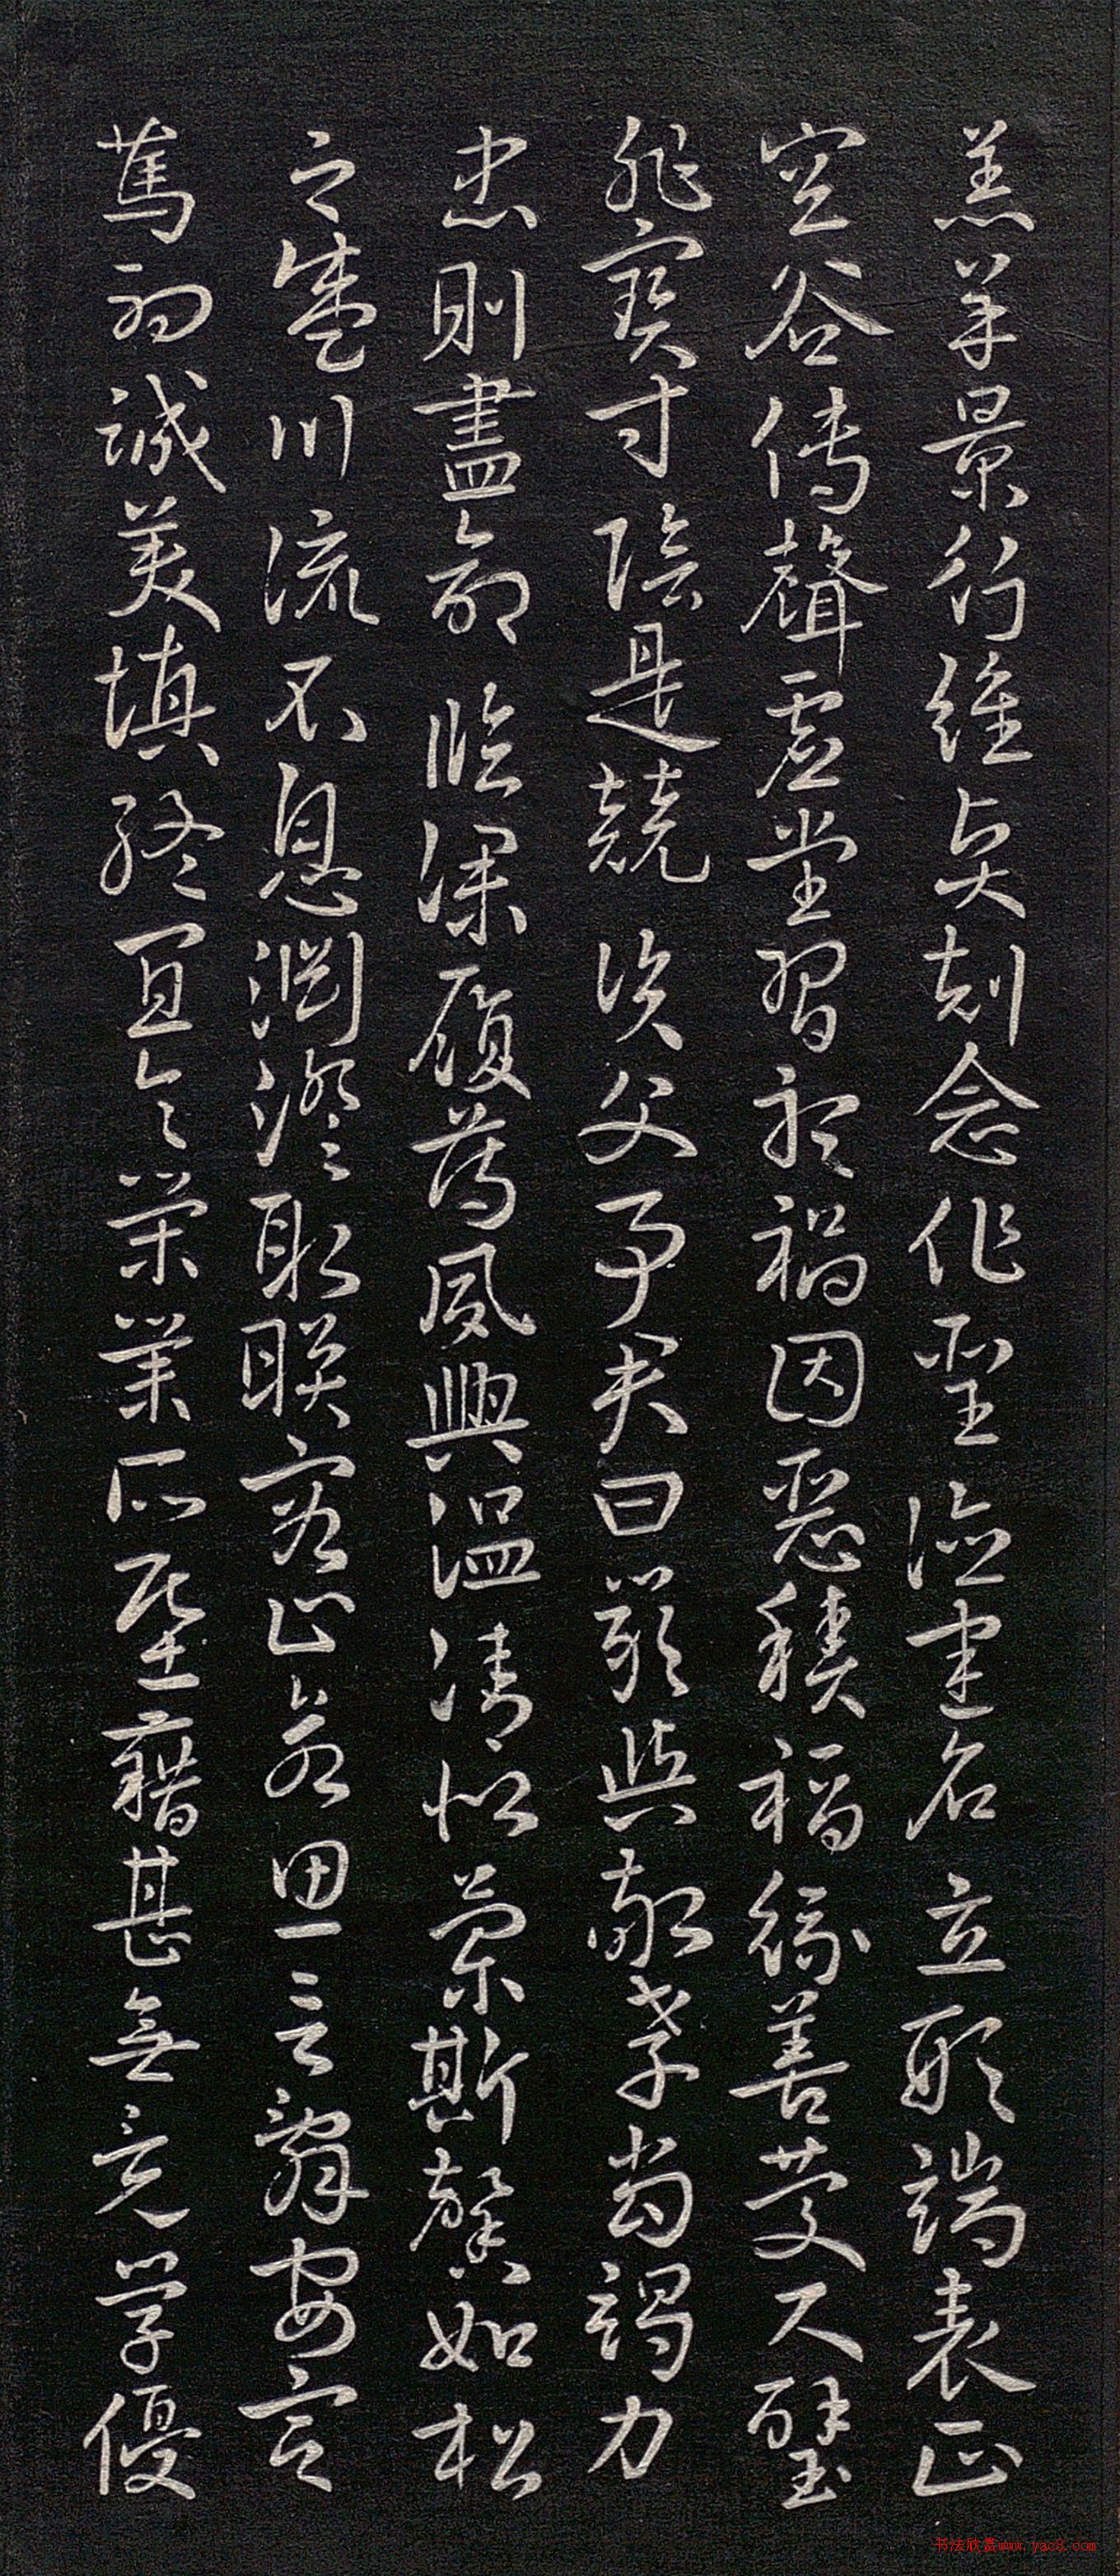 羔羊景行維賢剋念作聖德建名立形端表正
空谷傳聲虛堂習聽禍因惡積福緣善慶尺璧
非寶寸陰是競資父事君曰嚴與敬孝當竭力
忠則盡命臨深履薄夙興溫凊似蘭斯馨如松
之盛川流不息淵澄取暎容止若思言辭安定
篤初誠美慎終宜令榮業所基藉甚無竟學優
书法欣赏www.yac8.com